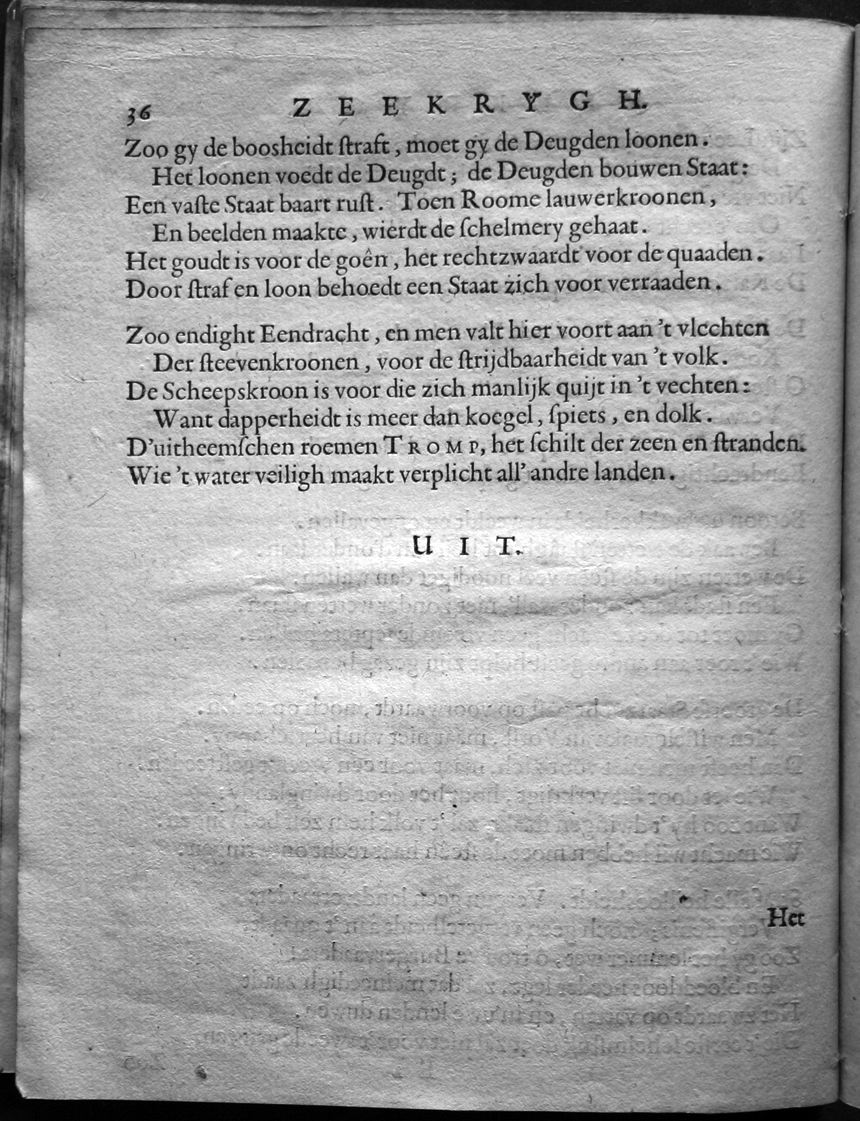 36 ZEEKRYGH.
Zoo gy de boosheidt ſtraft, moet gy de Deugden loonen.
Het loonen voedt de Deugdt; de Deugden bouwen Staat:
Een vaſte Staat baart ruſt. Toen Roome lauwerkroonen,
En beelden maakte, wierdt de ſchelmery gehaat.
Het goudt is voor de goên, het rechtzwaardt voor de quaaden.
Door ſtraf en loon behoedt een Staat zich voor verraaden.
Zoo endight Eendracht, en men valt hier voort aan 't vlechten
Der ſteevenkroonen, voor de ſtrijdbaarheidt van 't volk.
De Scheepskroon is voor die zich manlijk quijt in 't vechten:
Want dapperheidt is meer dan koegel, ſpiets, en dolk.
D'uitheemſchen roemen TROMP, het ſchilt der zeen en ſtranden.
Wie 't water veiligh maakt verplicht all' andre landen.
UIT.
Het